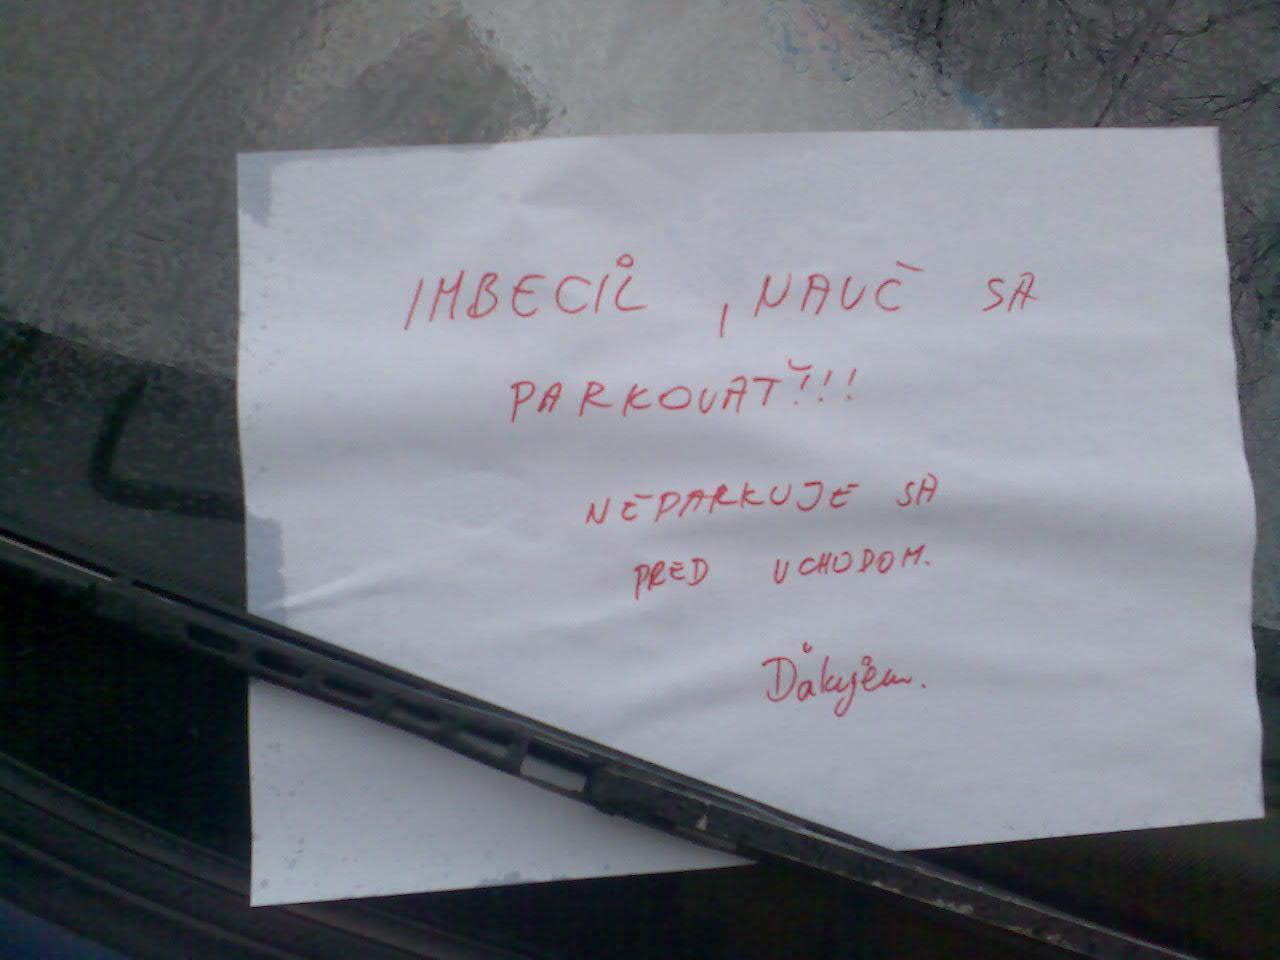 IMBECIL , NAUČ SA
PARKOVAŤ!!!
NEPARKUJE SA
PRED UCHODOM.
Ďakujem.